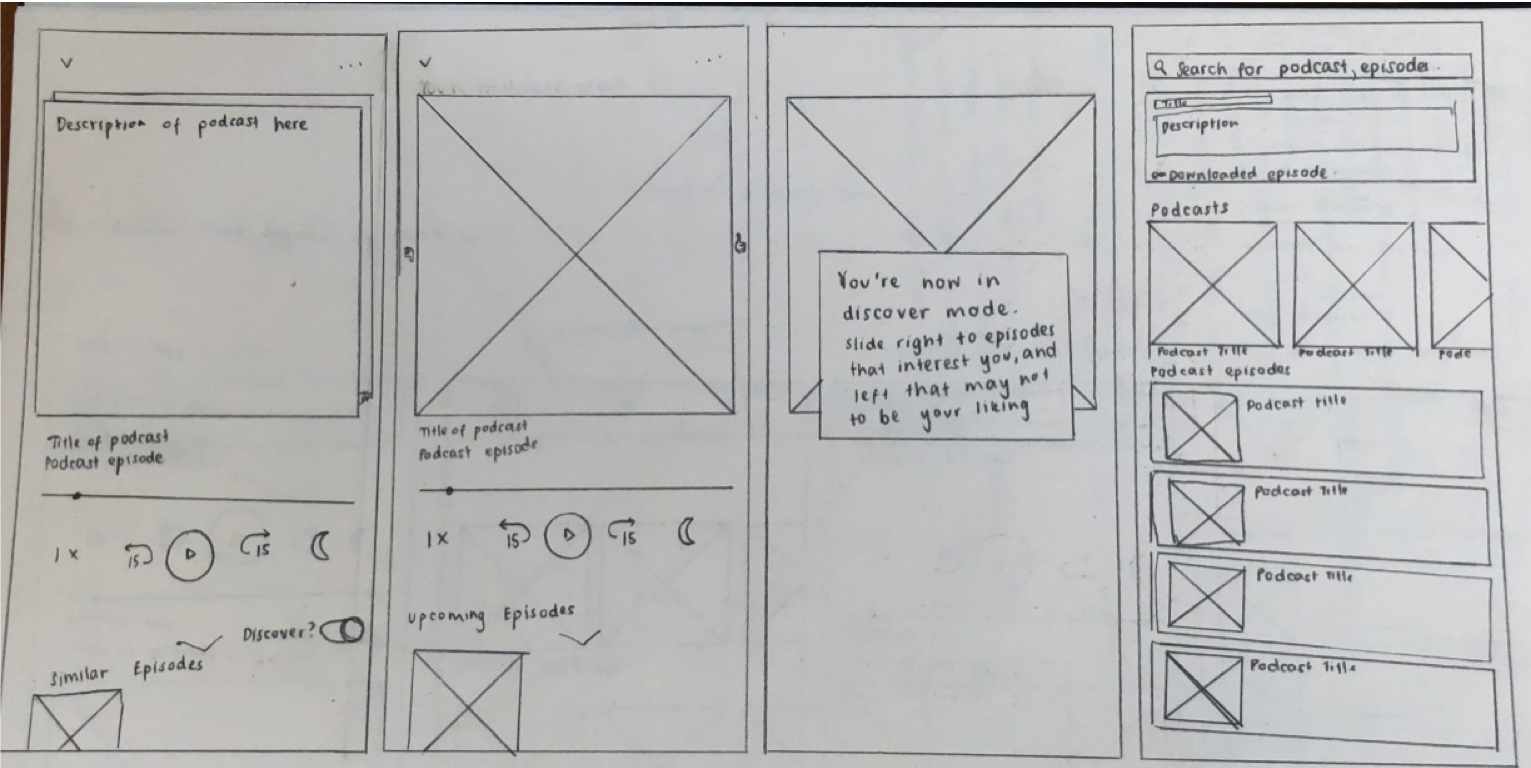 Description of podcast here
Title of podcast
Podcast episode
1x
15
15
Discover?
Similar Episodes
Title of podcast
Podcast episode
1x
15
15
Upcoming Episodes
You're now in
discover mode.
slide right to episodes
that interest you, and
left that may not
to be your liking
Search for podcast, episodes.
Title
Description
Downloaded episode
Podcasts
Podcast Title
Podcast Title
Podc
Podcast episodes
Podcast title
Podcast Title
Podcast Title
Podcast Title